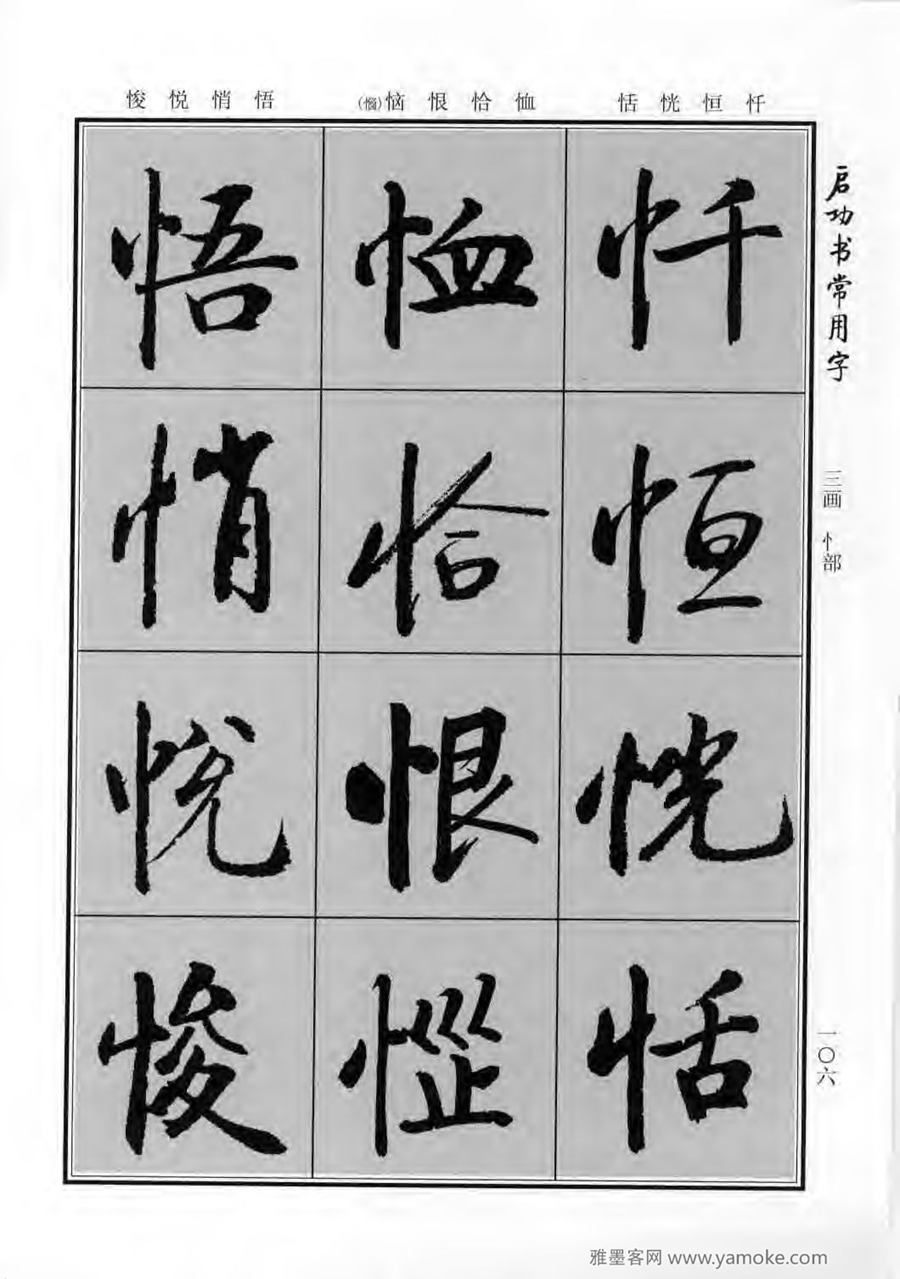 忏恒恍恬
恤恰恨恼(惱)
悟悄悦悛
启功书常用字
三画 忄部
一〇六
忏
恒
恍
恬
恤
恰
恨
惱
悟
悄
悦
悛
雅墨客网 www.yamoke.com